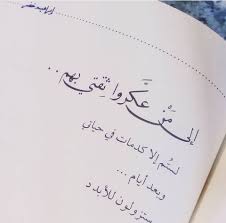 إبراهيم خضر
إلى مَن عكَّروا ثِقتي بهم ..
لستُم إلا كدمات في حياتي
وبعد أيام ...
ستزولون للأبد